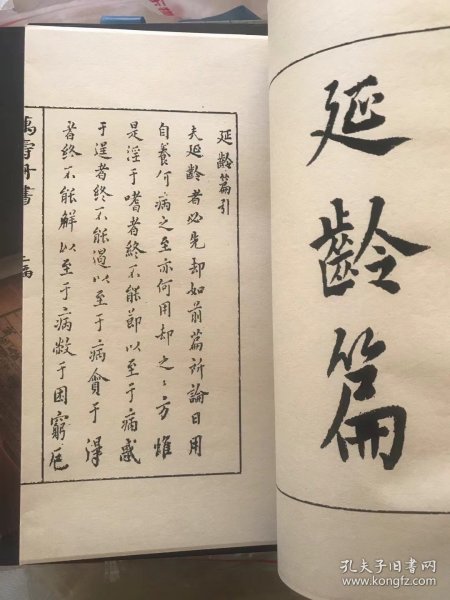 延齡篇
延齡篇引
夫延齡者必先却如前篇所論日用
自養何病之至亦何用却之〻方惟
是淫于嗜者終不能節以至于病
于逞者終不能遏以至于病貪于得
者終不能解以至于病敝于困窮厄
萬壽丹書
孔夫子旧书网
www.kongfz.com